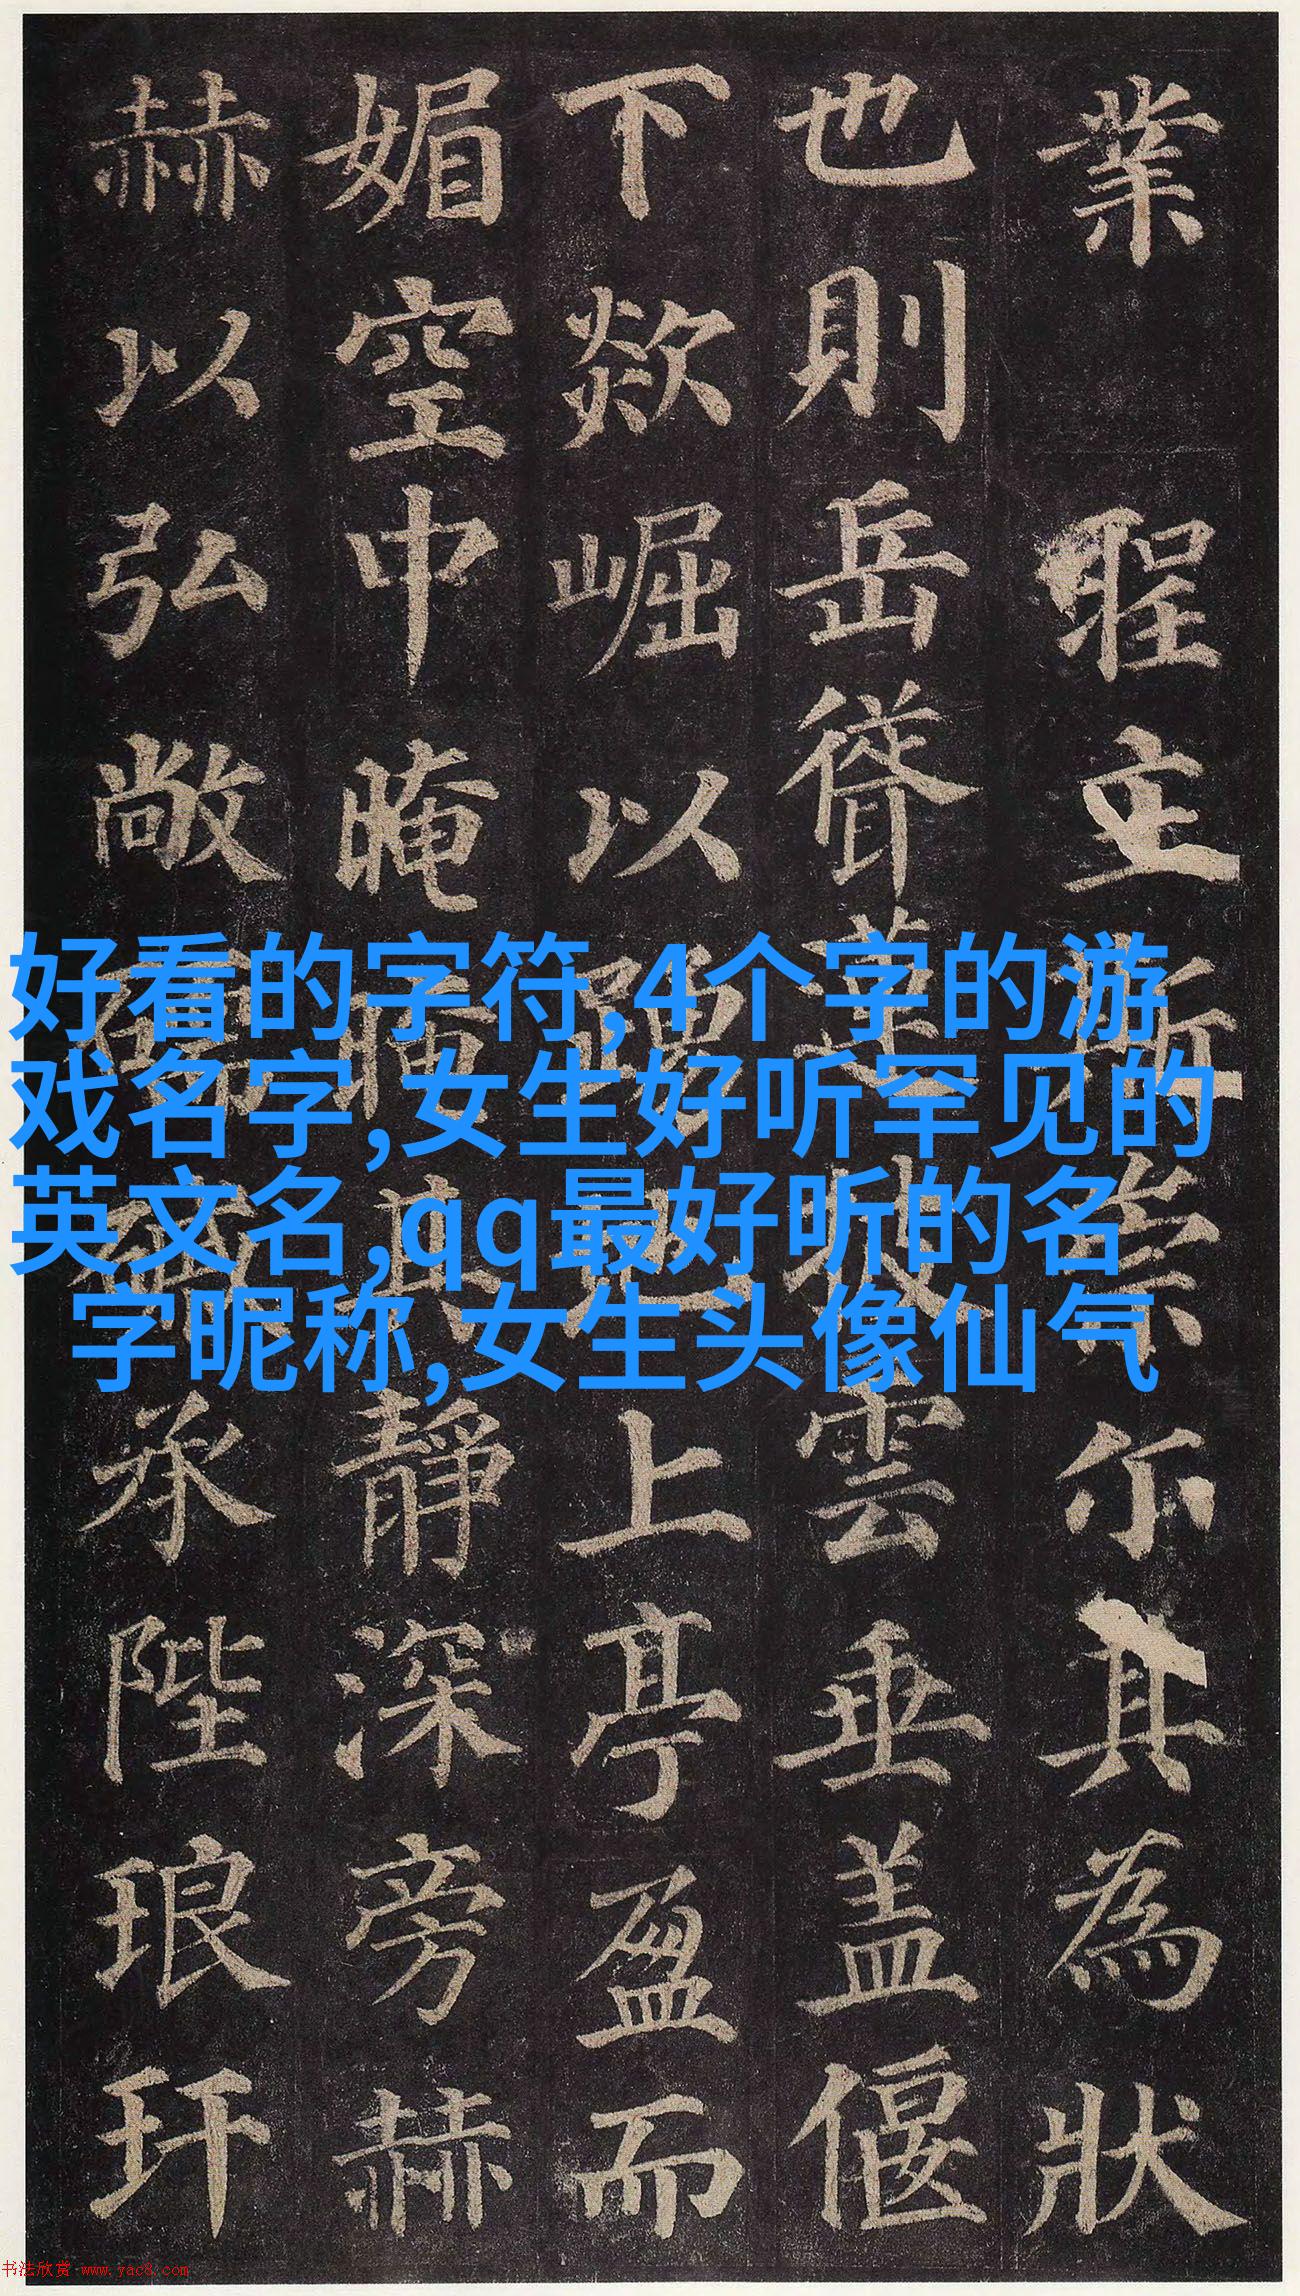 業聖主斯崇尔其為狀
也則岳聳蓮披雲垂蓋偃
下欻崛以踊地上亭盈而
媚空中晻晻其靜深旁赫
赫以弘敞礝磩承陛琅玕
好看的字符,4个字的游
戏名字,女生好听罕见的
英文名,qq最好听的名
字昵称,女生头像仙气
书法欣赏 www.yac8.com